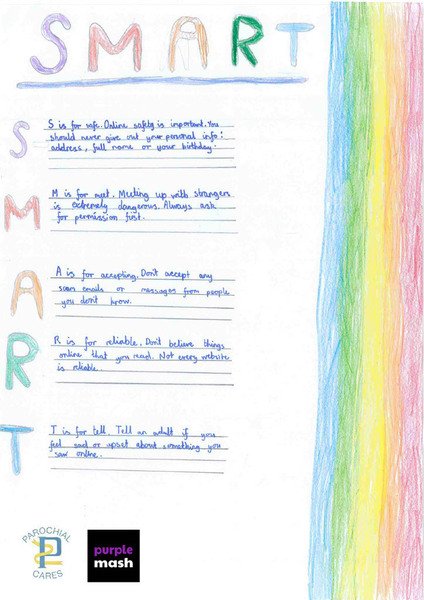 SMART
S
S is for safe. Online safety is important. You
should never give out your personal info:
address, full name or your birthday.
M
M is for meet. Meeting up with strangers
is extremely dangerous. Always ask
for permission first.
A
A is for accepting. Don't accept any
scam emails or messages from people
you don't know.
R
R is for reliable. Don't believe things
online that you read. Not every website
is reliable.
T
T is for tell. Tell an adult if you
feel sad or upset about something you
saw online.
PAROCHIAL
P
CARES
purple
mash